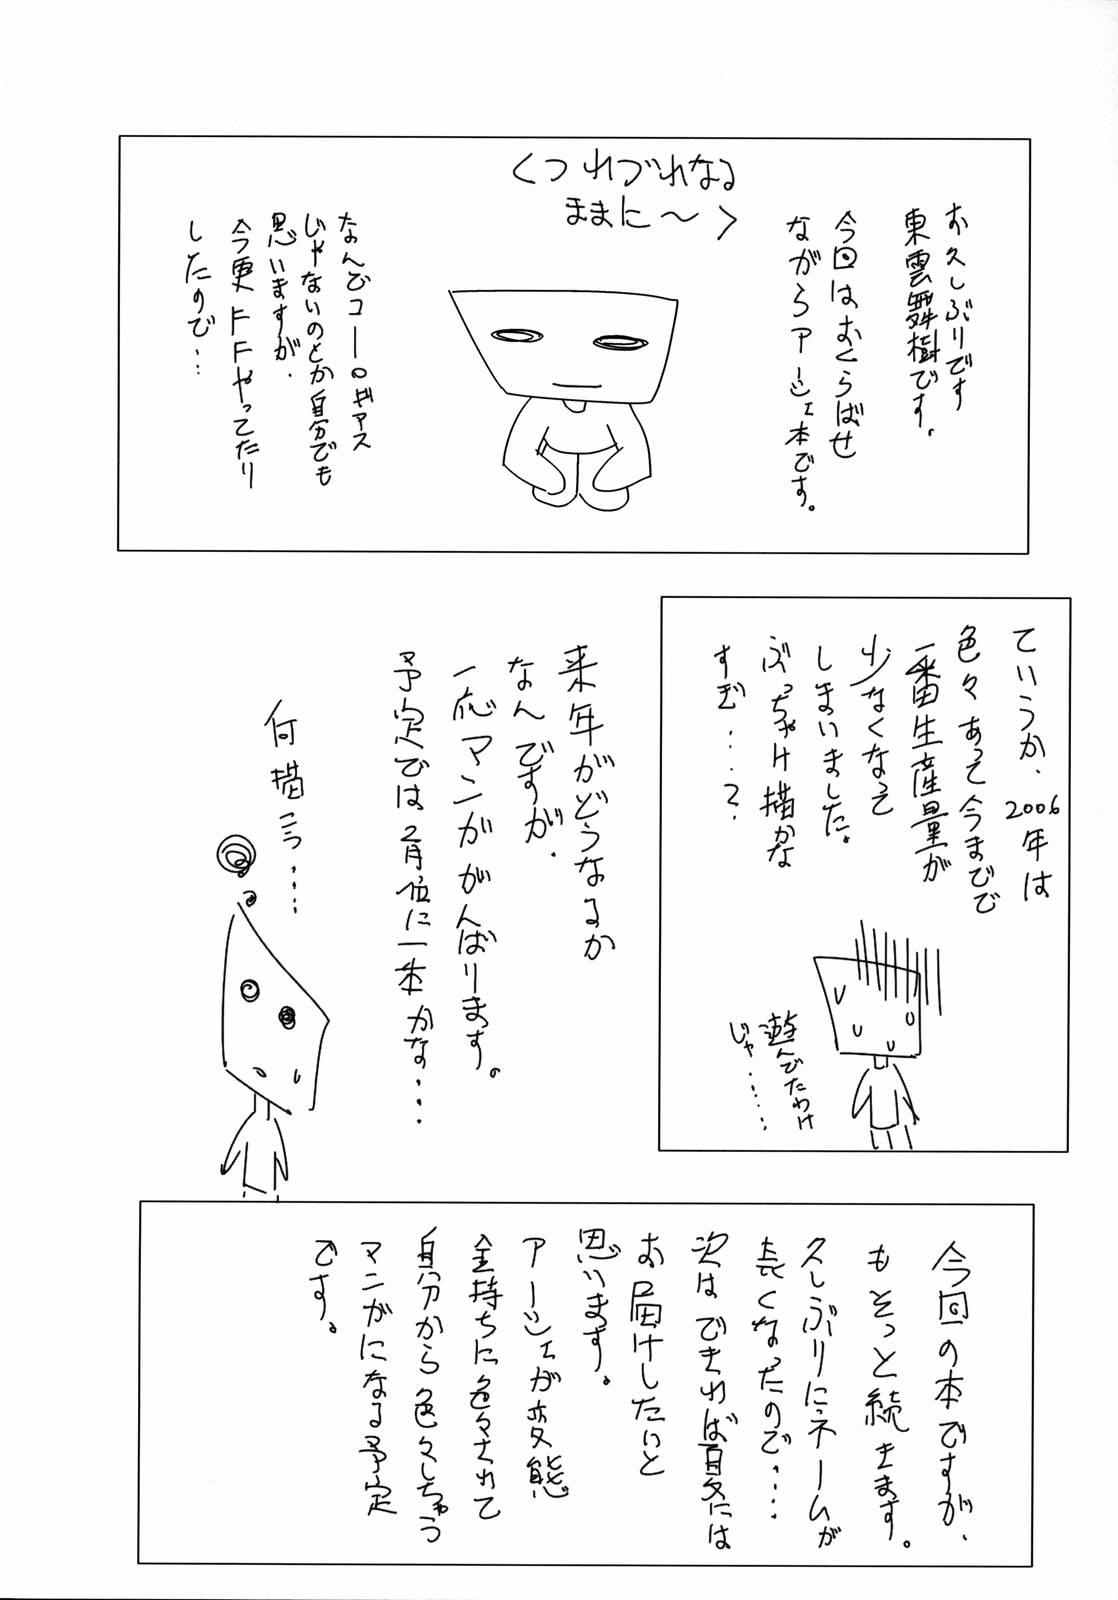 くつれづれなる
ままに〜>
お久しぶりです
東雲舞樹です。
今回はおくらばせ
ながらアーシェ本です。
なんでコードギアス
じゃないのとか自分でも
思いますが、
今更FFやってたり
したので…
ていうか、2006年は
色々あって今までで
一番生産量が
少なくなって
しまいました。
ぶっちゃけ描かな
すぎ…?
遊んでたわけ
じゃ……
来年がどうなるか
なんですが、
一応マンガがんばります。
予定では2月位に一本かな…
何描こう…
今回の本ですが、
もそっと続きます。
久しぶりにネームが
長くなったので…
次はできれば夏には
お届けしたいと
思います。
アーシェが変態
金持ちに色々されて
自分から色々しちゃう
マンガになる予定
です。